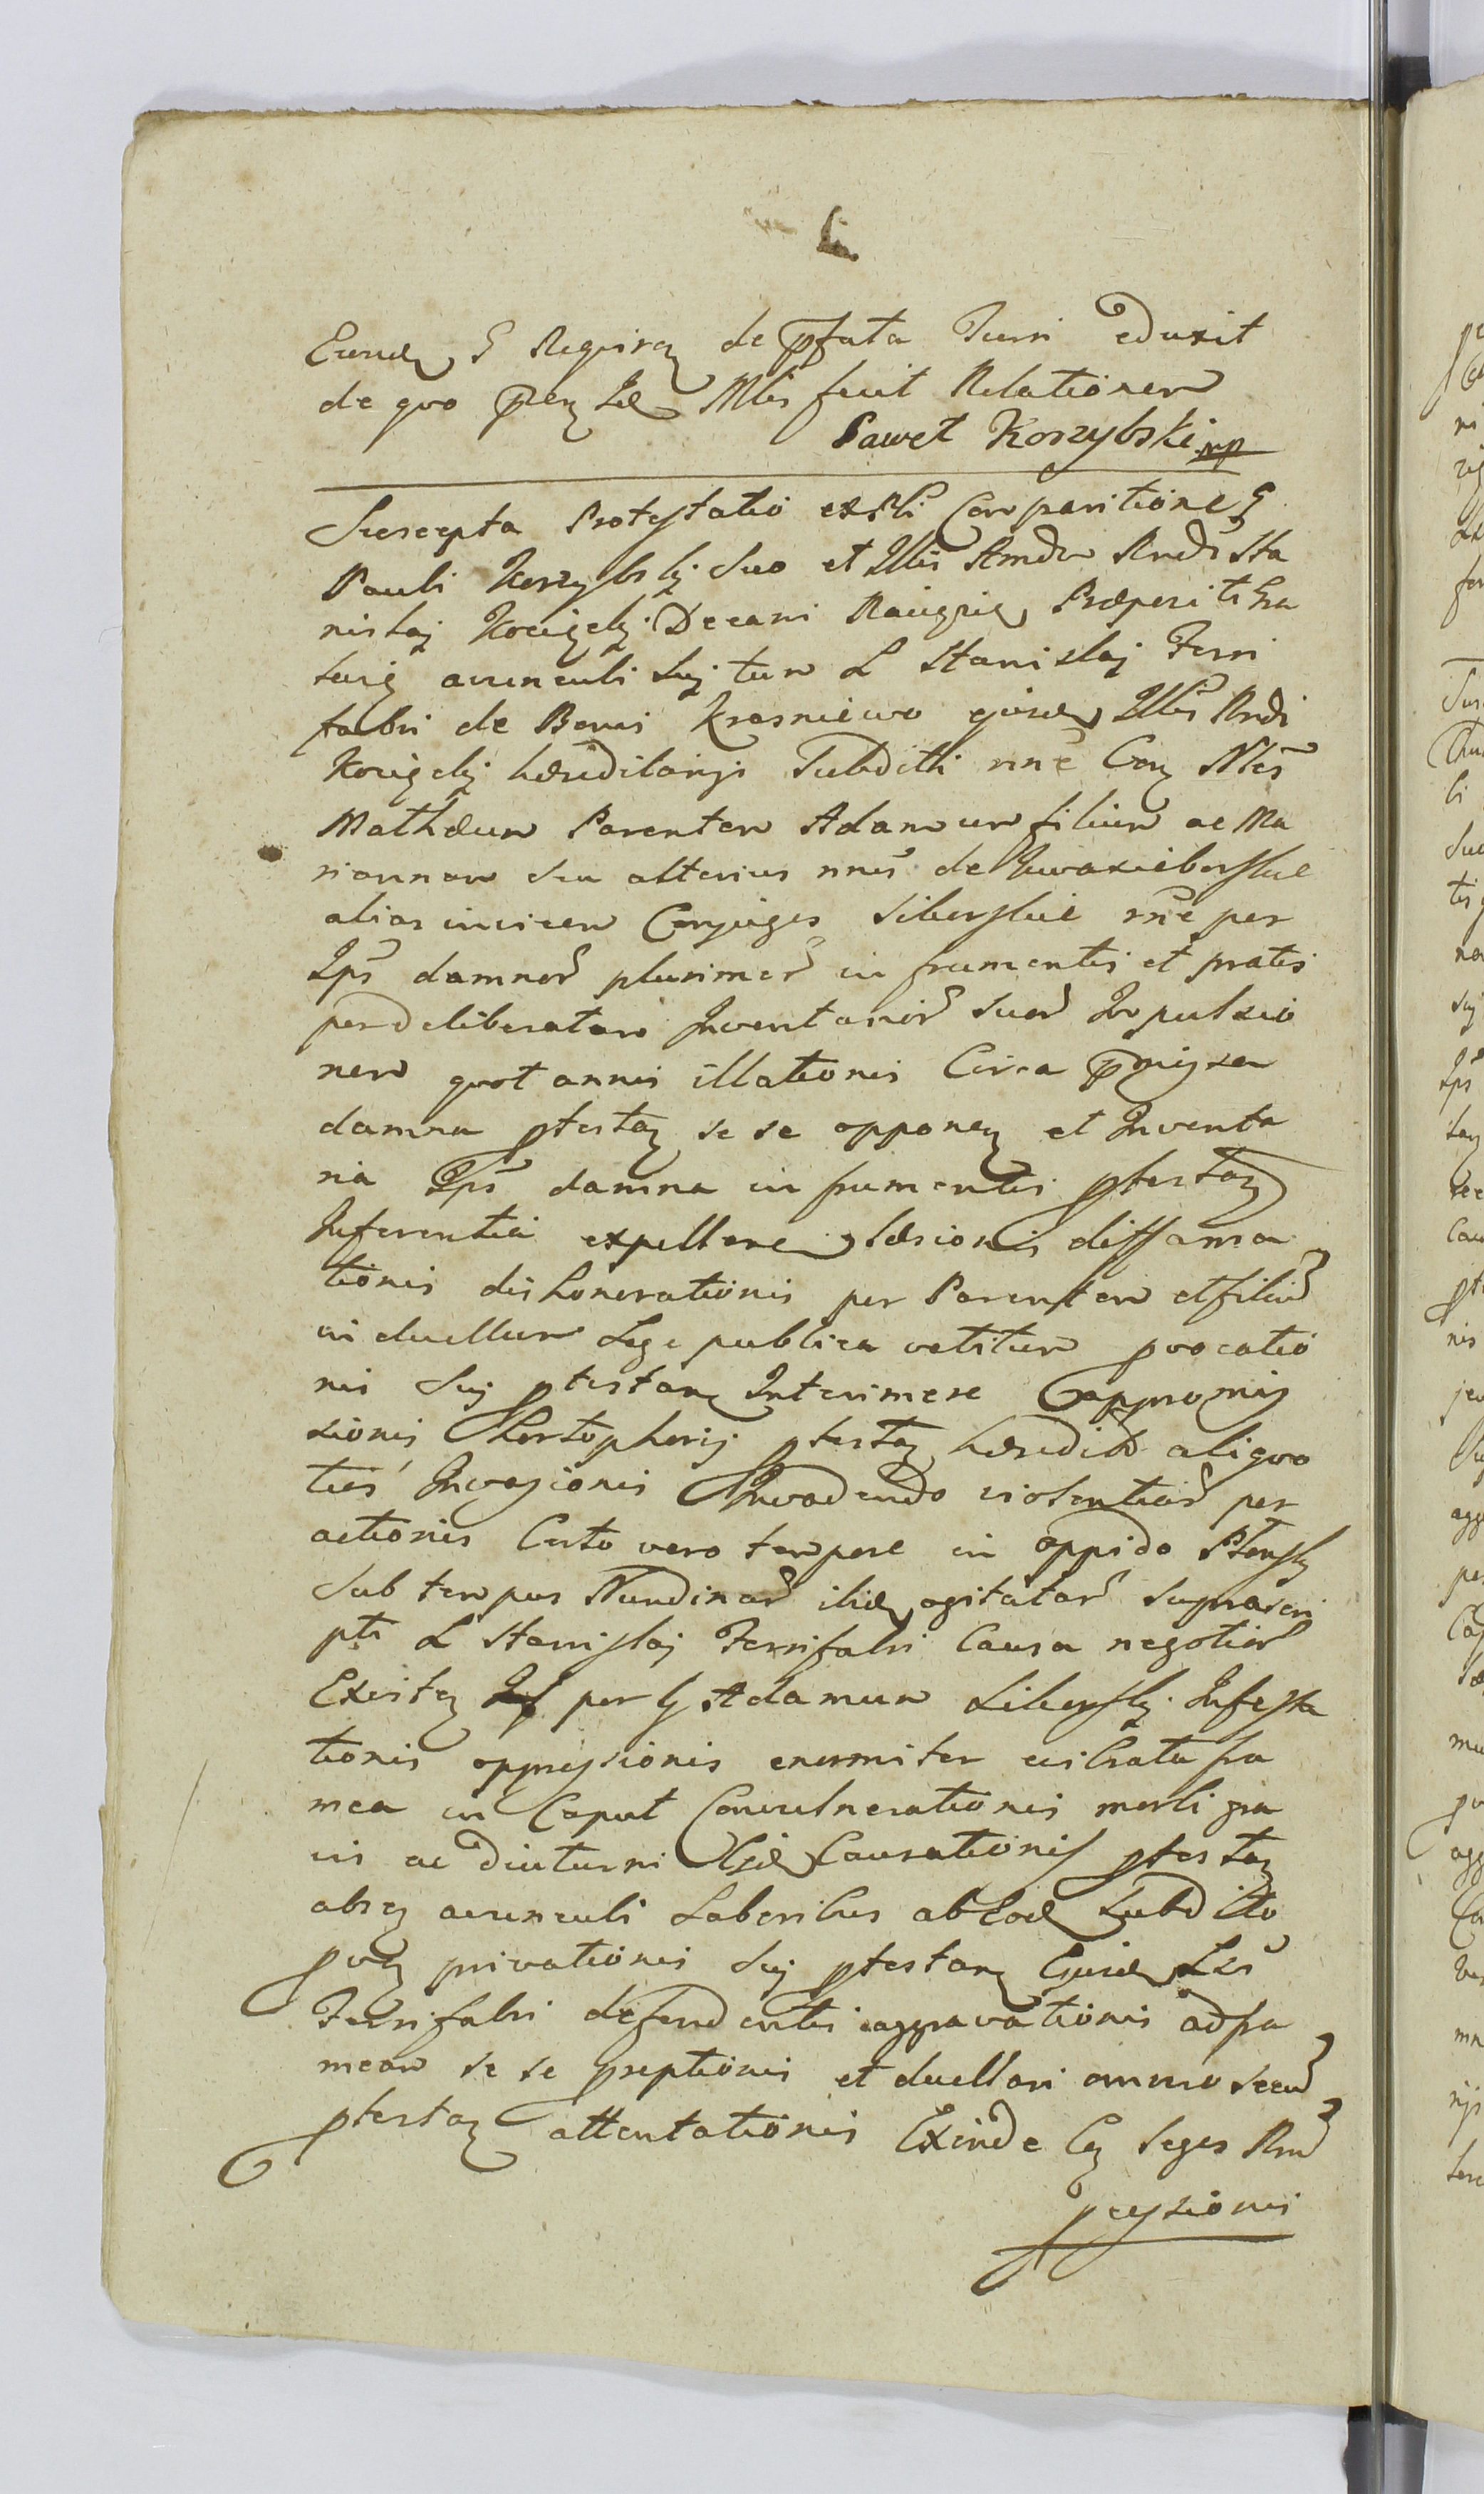 Eund G Requiren de pfata Turri eduxit
de quo pen Id Mlis fecit Relationem
Paweł Korzybski mp
Suscepta Protestatio ex Pli Comparitione G
Pauli Korzybskj Suo et Illis Amdm Rndi Sta
nislaj Decani Præpositi Gra
avunculi Suj tum L Stanislaj Ferri
fabri de Bonis Krasniewo ejusd Illis Rndi
hæreditarijs Subditi nne Con Nles
Mathæum Parentem Adamum filium ac Ma
riannam seu alterius nnis de
alias invicem Conjuges Liberskie rne per
Ips damnor plurimor in frumentis et pratis
per deliberatam Inventarior suor Impulsio
nem quot annis illationis Circa pmissa
damna ptestan se se opponen et Inventa
ria Ips damna in frumentis ptestan
Inferentia expellere læsionis diffama
tionis dishonorationis per Parentem et filiū
in duellum Lege publica vetitum pvocatio
nis Suj ptestan Interimere appromis
sionis ptestan hæredit aliquo
ties Invasionis Invadendo violentiar per
actionis Certo vero tempore in oppido
Sub tempus Nundinar ibid agitatar suprascri
pti L Stanislaj Ferrifabri Causa negotior
Existen per G Adamum Libersky Infesta
tionis oppressionis enormiter vibrata fra
mea in Caput Convulnerationis morbi gra
vis ac diuturni Causationis ptestan
absq avunculi Laboribus ab Eod Subdito
pven privationis Suj ptestan Ejusd Lis
Ferrifabri defendentis aggravationis ad fra
meam se se preptionis et duellari animo secū
ptestan attentationis Exinde Cen leges Rnū
pcessionis